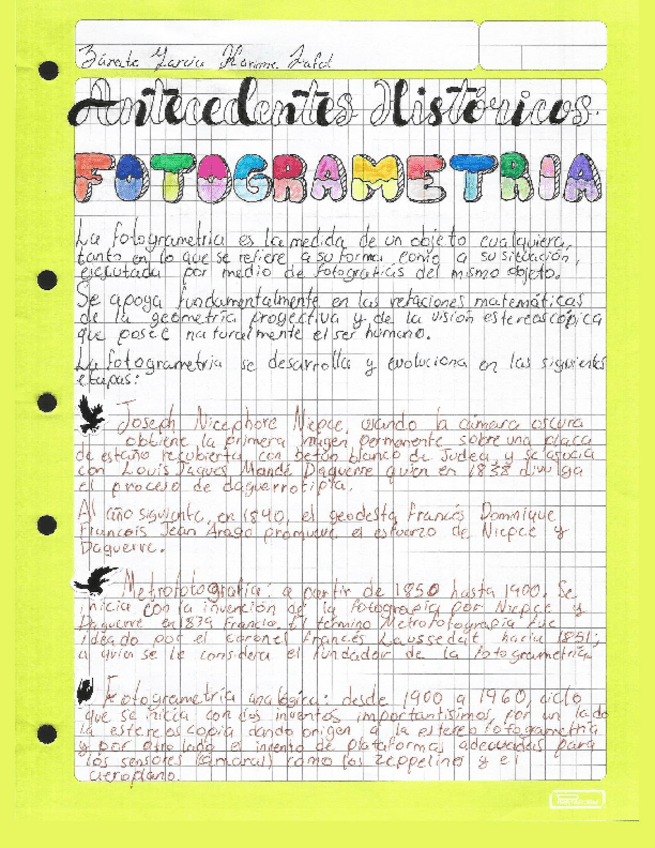 Zárate García Karime
Antecedentes Históricos.
FOTOGRAMETRIA
La fotogrametría es la medida de un objeto cualquiera,
tanto en lo que se refiere a su forma como a su situación,
ejecutada por medio de fotografías del mismo objeto.
Se apoya fundamentalmente en las relaciones matemáticas
de la geometría proyectiva y de la visión estereoscópica
que posee naturalmente el ser humano.
La fotogrametría se desarrolla y evoluciona en las siguientes
etapas:
Joseph Nicephore Niepce, usando la cámara oscura
obtiene la primera imagen permanente sobre una placa
de estaño recubierta con betún blanco de Judea, y se asocia
con Louis Jaques Mandé Daguerre quien en 1838 divulga
el proceso de daguerrotipia.
Al año siguiente, en 1840, el geodesta Francés Dominique
Francois Jean Arago promueve el esfuerzo de Niepce y
Daguerre.
Metrofotografia: a partir de 1850 hasta 1900. Se
inicia con la invención de la fotografía por Niepce y
Daguerre en 1839 Francia. El término Metrofotografia fue
ideado por el coronel Francés Laussedat, hacia 1851;
a quién se le considera el fundador de la fotogrametría
Fotogrametría analógica: desde 1900 a 1960, ciclo
que se inicia con dos inventos importantísimos, por un lado
la estereoscopia dando origen a la estereofotogrametría
y por otro lado el invento de plataformas adecuadas para
los sensores (cámaras) como los zeppelino y el
aeroplano.